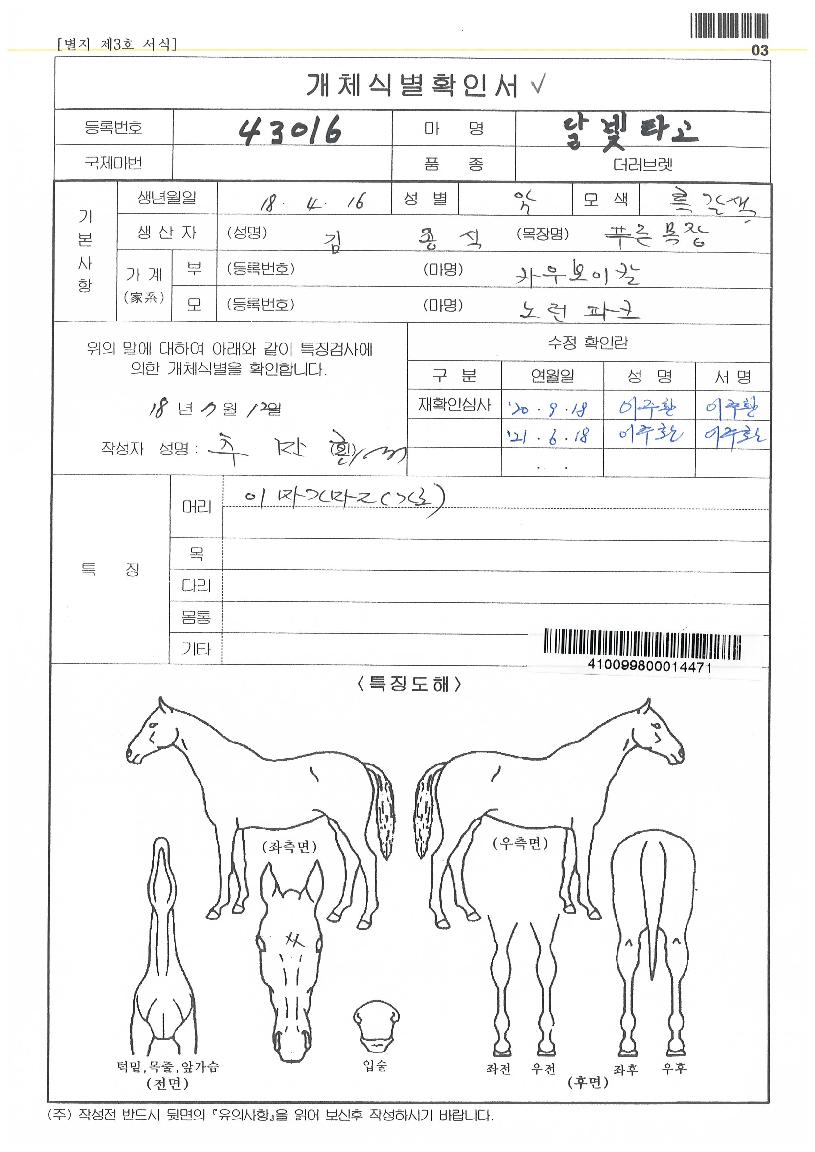 [별지 제3호 서식]
03
개체식별확인서 √
등록번호 43016 마 명 달빛타고
국제마번 품 종 더러브렛
기본사항
생년월일 18. 4. 16 성 별 암 모 색 흑갈색
생 산 자 (성명) 김 종 식 (목장명) 푸른목장
가 계 (家系) 부 (등록번호) (마명) 카우보이칼
모 (등록번호) (마명) 노런 파크
위의 말에 대하여 아래와 같이 특징검사에
의한 개체식별을 확인합니다.
18 년 7 월 12일
작성자 성명 : (인)
수정 확인란
구 분 연월일 성 명 서 명
재확인심사 '20. 9. 18 이주환 이주환
'21. 6. 18 이주환 이주환
. .
특 징
머리
목
다리
몸통
기타
410099800014471
<특징도해>
(좌측면) (우측면)
턱밑,목줄,앞가슴
(전면)
입술
좌전 우전 좌후 우후
(후면)
(주) 작성전 반드시 뒷면의 『유의사항』을 읽어 보신후 작성하시기 바랍니다.